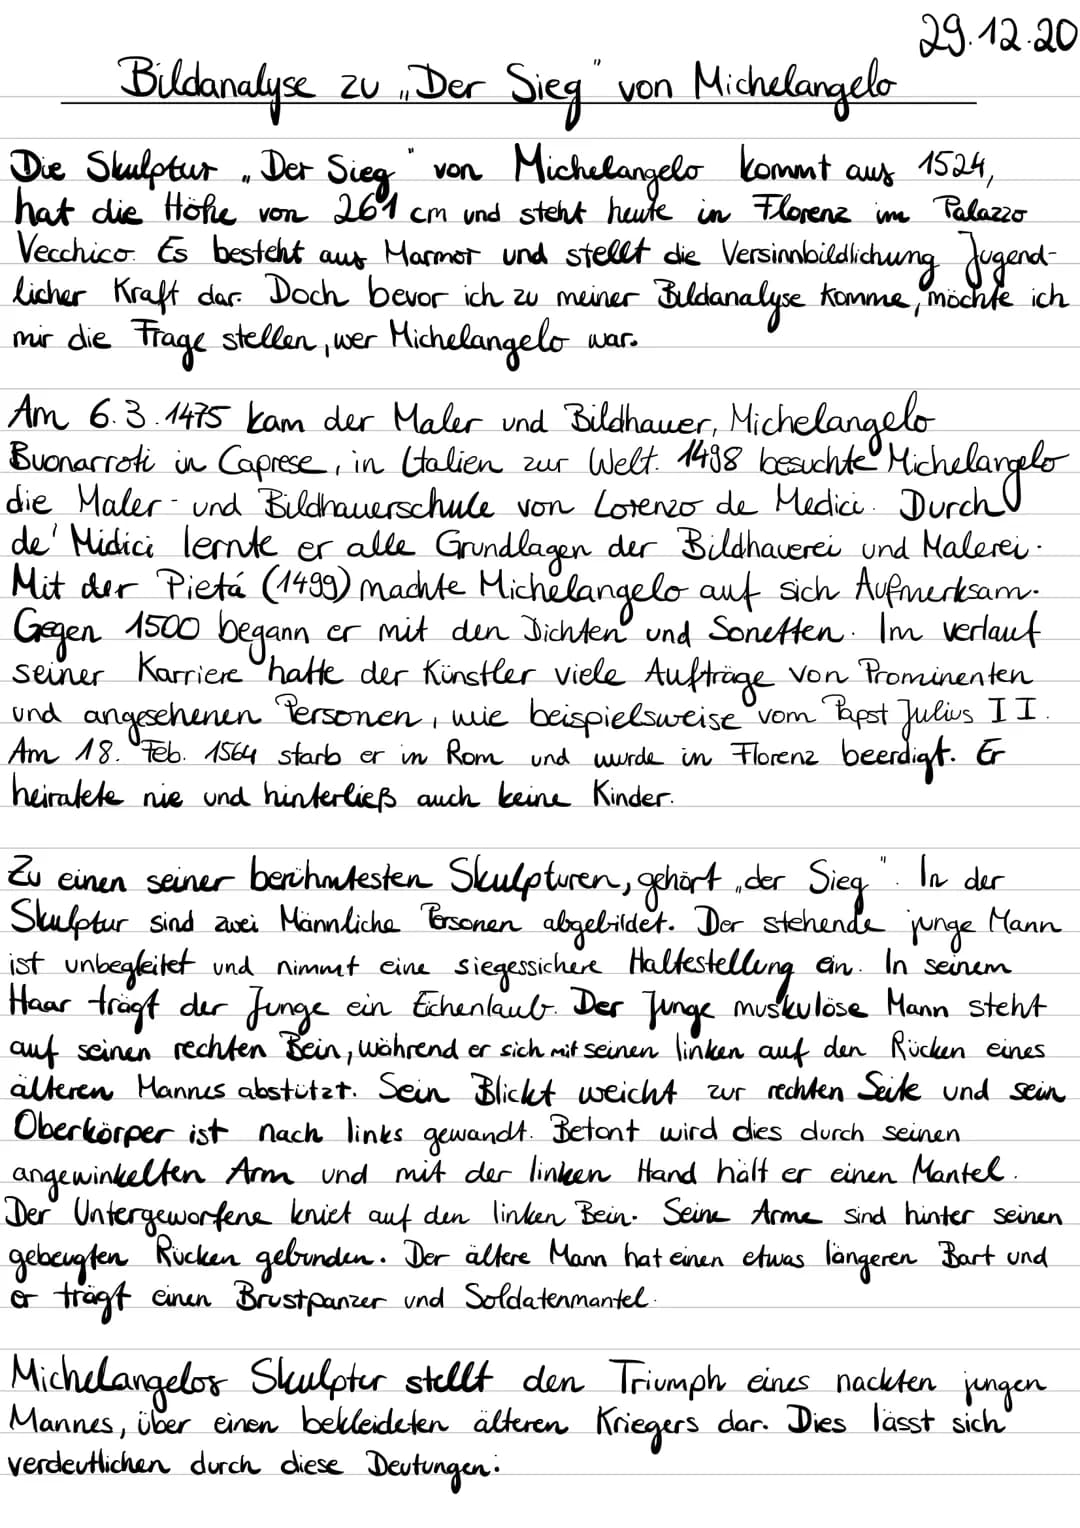 29.12.20
Bildanalyse zu „Der Sieg" von Michelangelo
Die Skulptur „Der Sieg" von Michelangelo kommt aus 1524,
hat die Höhe von 261 cm und steht heute in Florenz im Palazzo
Vecchico. Es besteht aus Marmor und stellt die Versinnbildlichung Jugend-
licher Kraft dar. Doch bevor ich zu meiner Bildanalyse komme, möchte ich
mir die Frage stellen, wer Michelangelo war.
Am 6.3.1475 kam der Maler und Bildhauer, Michelangelo
Buonarroti in Caprese, in Italien zur Welt. 1498 besuchte Michelangelo
die Maler- und Bildhauerschule von Lorenzo de Medici. Durch
de' Midici lernte er alle Grundlagen der Bildhauerei und Malerei.
Mit der Pietá (1499) machte Michelangelo auf sich Aufmerksam.
Gegen 1500 begann er mit den Dichten und Sonetten. Im verlauf
seiner Karriere hatte der Künstler viele Aufträge von Prominenten
und angesehenen Personen, wie beispielsweise vom Papst Julius II.
Am 18. Feb. 1564 starb er in Rom und wurde in Florenz beerdigt. Er
heiratete nie und hinterließ auch keine Kinder.
Zu einen seiner berühmtesten Skulpturen, gehört „der Sieg". In der
Skulptur sind zwei Männliche Personen abgebildet. Der stehende junge Mann
ist unbegleitet und nimmt eine siegessichere Haltestellung ein. In seinem
Haar trägt der Junge ein Eichenlaub. Der Junge muskulöse Mann steht
auf seinen rechten Bein, während er sich mit seinen linken auf den Rücken eines
älteren Mannes abstützt. Sein Blickt weicht zur rechten Seite und sein
Oberkörper ist nach links gewandt. Betont wird dies durch seinen
angewinkelten Arm und mit der linken Hand hält er einen Mantel.
Der Untergeworfene kniet auf den linken Bein. Seine Arme sind hinter seinen
gebeugten Rücken gebunden. Der ältere Mann hat einen etwas längeren Bart und
er trägt einen Brustpanzer und Soldatenmantel.
Michelangelos Skulptur stellt den Triumph eines nackten jungen
Mannes, über einen bekleideten älteren Kriegers dar. Dies lässt sich
verdeutlichen durch diese Deutungen: